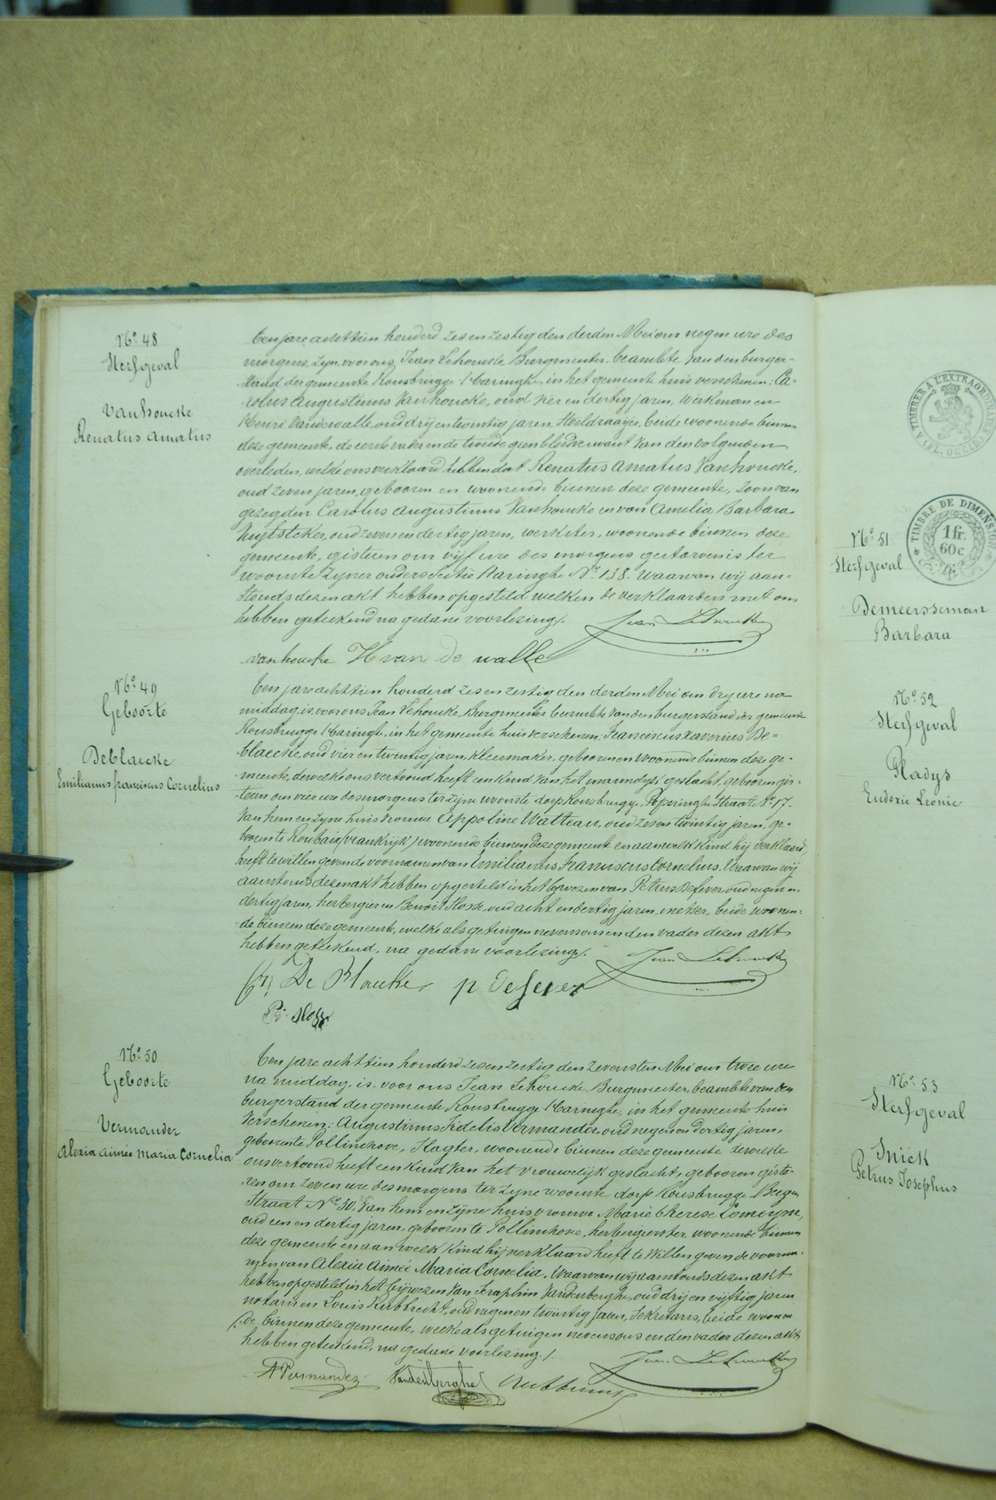 No 48
Sterfgeval
Vanhoucke
Renatus Amatus
Een jare achttien honderd zes en zestig den derden Mei om negen ure des
morgens, zyn voor ons Jean Lehoucke Burgmeester, beambte van den burger-
stand der gemeente Rousbrugge Haringhe, in het gemeente huis verschenen: Ca-
rolus Augustinus Vanhoucke, oud vier en dertig jaren, Werkman en
Henri Vandewalle, oud drij en twintig jaren, beide woonende binnen
deze gemeente, de eerste vader en de tweede geen bloedverwant van den volgenden
overleden, welke ons verklaard hebben dat Renatus Amatus Vanhoucke,
oud zeven jaren, geboren en woonende binnen deze gemeente, zoon van
gezegden Carolus Augustinus Vanhoucke en van Amelia Barbara
oud zeven en dertig jaren, werkster, woonende binnen deze
gemeente, gisteren om vijf ure des morgens gestorven is ter
woonste zyner ouders Sectie Haringhe No 138. waarvan wij aan-
stonds dezen akt hebben opgesteld welken de verklaarders met ons
hebben geteekend na gedane voorlezing /.
Jean Lehoucke
vanhoucke H van de walle
No 49
Geboorte
Deblaecke
Emilianus franciscus Cornelius
Een jare achttien honderd zes en zestig den derden Mei om dry ure na
middag, is voor ons Jean Lehoucke, Burgmeester beambte van den burgerstand der gemeente
Rousbrugge Haringhe, in het gemeente huis verschenen, Franciscus Xaverius De-
blaecke, oud vier en twintig jaren, kleermaker, geboren en woonende binnen deze ge-
meente, dewelke ons vertoond heeft een kind van het mannelyk geslacht, geboren gis-
teren om vier ure des morgens ter zyne woonste dorp Rousbrugge, Popringhe Straat, No 17.
Van hem en zyne huisvrouw Appoline Watteau, oud zes en twintig jaren, ge-
boren te Roubaix (vrankrijk) woonende binnen deze gemeente en aan welk kind hij verklaard
heeft te willen geven de voornamen van Emilianus Franciscus Cornelius. Waarvan wij
aanstonds dezen akt hebben opgesteld in het bywezen van P. Desever oud negen en
dertig jaren, herbergier en Benoit oud acht en dertig jaren, beide woonen-
de binnen deze gemeente, welke als getuigen nevens ons en den vader dezen akt
hebben geteekend, na gedane voorlezing /.
Jean Lehoucke
De Blaecke p Desever
No 50
Geboorte
Vermander
Alexia Aimée Maria Cornelia
Een jare achttien honderd zes en zestig den zevensten Mei om twee ure
na middag, is voor ons Jean Lehoucke Burgmeester, beambte van den
burgerstand der gemeente Rousbrugge Haringhe, in het gemeente huis
verschenen: Augustinus Fidelis Vermander, oud negen en dertig jaren,
geboren te Pollinchove, Slagter, woonende binnen deze gemeente dewelke
ons vertoond heeft een kind van het vrouwelijk geslacht, geboren giste-
ren om zeven ure des morgens ter zyne woonste dorp Rousbrugge Bergen
Straat No 50, Van hem en zyne huisvrouwe Marie Therese
oud een en dertig jaren, geboren te Pollinchove, herbergierster, woonende binnen
deze gemeente en aan welk kind hij verklaard heeft te willen geven de voorna-
men van Alexia Aimée Maria Cornelia. Waarvan wij aanstonds dezen akt
hebben opgesteld in het bijwezen van Seraphin Vandenberghe, oud drij en vijftig jaren
notaris en Louis Rubbrecht, oud negen en twintig jaren, Sekretaris, beide woonen-
de binnen deze gemeente, welke als getuigen nevens ons en den vader dezen akt
hebben geteekend, na gedane voorlezing /.
Jean Lehoucke
A Vermander Vandenberghe
TIMBRE DE DIMENSION
1 fr.
60 c
No 51
Sterfgeval
Demeersseman
Barbara
No 52
Sterfgeval
Gladys
Euderie Leonie
No 53
Sterfgeval
Snick
Petrus Josephus